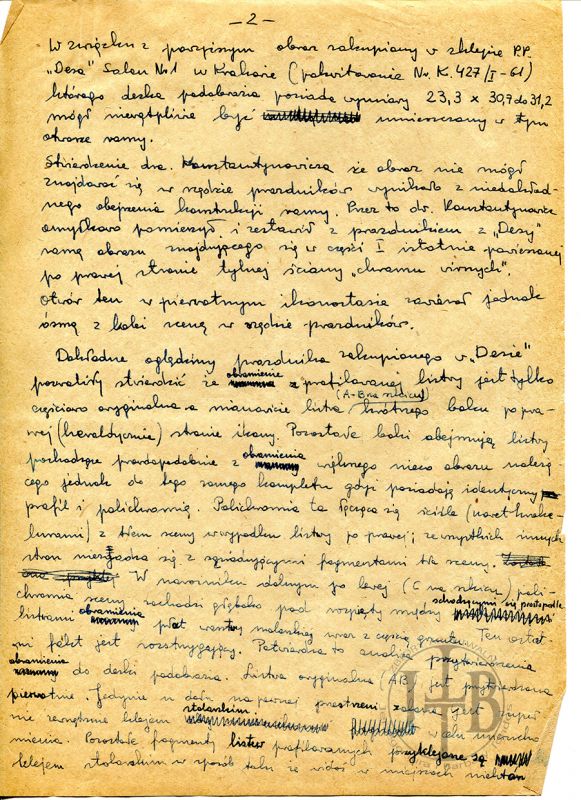 — 2 —
W związku z powyższym obraz zakupiony w sklepie P.P.
„Desa" Salon Nr 1 w Krakowie (pokwitowanie Nr. K. 427/I-61)
którego deska podobrazia posiada wymiary 23,3 x 30,7 do 31,2
mógł niewątpliwie być umieszczony w tym
otworze ramy.
Stwierdzenie dra. Konstantynowicza że obraz nie mógł
znajdować się w rzędzie prazdników wynikało z niedokład-
nego obejrzenia konstrukcji ramy. Przez to dr. Konstantynowicz
omyłkowo pomierzył i zestawił z prazdnikiem z „Desy"
ramę obrazu znajdującego się w części I ostatnio powieszonej
po prawej stronie tylnej ściany „chramu virnych".
Otwór ten w pierwotnym ikonostasie zawierał jednak
ósmą z kolei scenę w rzędzie prazdników.
Dokładne oględziny prazdnika zakupionego w „Desie"
pozwoliły stwierdzić że obramienie z profilowanej listwy jest tylko
(A-B na szkicu)
częściowo oryginalne a mianowicie listwa krótszego boku po pra-
wej (heraldycznie) stronie ikony. Pozostałe boki obejmują listwy
pochodzące prawdopodobnie z obramienia większego nieco obrazu należą-
cego jednak do tego samego kompletu gdyż posiadają identyczny
profil i polichromię. Polichromia ta łączy się ściśle (nawet krake-
lurami) z tłem sceny w wypadku listwy po prawej; ze wszystkich innych
stron nie zgadza się z sąsiadującymi fragmentami tła sceny.
W narożniku dolnym po lewej (C na szkicu) poli-
chromia sceny zachodzi głęboko pod rozpięty między schodzącymi się prostopadle
listwami obramienia płat warstwy malarskiej wraz z częścią gruntu. Ten ostat-
ni fakt jest rozstrzygający. Potwierdza to analiza przytwierdzenia
obramienia do deski podobrazia. Listwa oryginalna (AB) jest przytwierdzona
pierwotnie. Jedynie u dołu na pewnej przestrzeni zalana jest zupeł-
nie zewnętrznie klejem stolarskim w celu umocnie-
nia. Pozostałe fragmenty listew profilowanych przyklejane są
klejem stolarskim w sposób taki że widać w miejscach